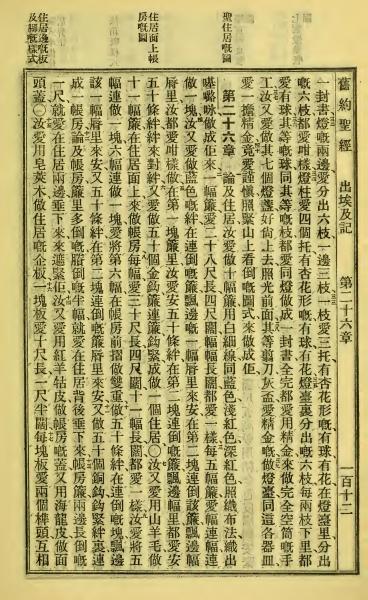 聖住居嘅圖
住居面上帳
房嘅圖
住居邊嘅板
及腳嘅樣式
舊約聖經 出埃及記 第二十六章 一百十三
一封書燈嘅兩邊愛分出六枝一邊三枝一枝愛三托有杏花形嘅有球有花在燈臺里分出
嘅六枝都愛咁樣燈柱愛四個托有杏花形嘅有球有花燈臺裏分出嘅六枝每兩枝下里都
愛有球其等嘅球同其等嘅枝都愛同燈做成一封書全完都愛用精金來做完全空筒嘅手
工汝又愛做其七個燈盞好尙上去照光前面其等剪刀灰盃愛精金嘅做燈臺同這各器皿
愛一擔精金愛愛謹愼照緊山上看倒嘅圖式來做成佢
第二十六章 論及住居汝愛做十幅簾用白細線同藍色淺紅色深紅色照織布法織出
𠼻𡀔咏做成正來一幅簾愛二十八尺長四尺闊幅幅長闊都愛一樣每五幅簾愛幅連幅連
做一塊汝又愛做藍色嘅絆在連倒嘅簾飄邊一幅簾脣里在第二塊連倒該幅簾飄邊幅
脣里汝都愛咁樣做在第一塊簾里汝愛安五十條絆在第二塊連倒嘅簾飄邊幅里都愛安
五十條絆絆來對絆又愛做五十個金鈎簾連簾鈎緊成做一個住居〇汝又愛用山羊毛做
十一幅簾在住居面上來做帳房每幅愛三十尺長四尺闊十一幅長闊都愛一樣汝愛將五
幅連做一塊六幅連做一塊愛將第六幅在帳房前摺做雙重做五十條絆在連倒嘅塊飄邊
該一幅簾脣里來安又五十條絆在第二塊連倒嘅簾脣里來安又做五十個銅鈎鈎緊絆裏連
成一帳房論及帳房簾里多倒嘅賸倒嘅半幅就愛在住居背後垂下來帳房簾兩邊長倒嘅
一尺就愛在住居兩邊垂下來來遮緊佢汝又愛用紅羊牯皮做帳房嘅蓋又用海龍皮做面
頭蓋〇汝愛用皂莢木做住居嘅企板一塊板愛十尺長一尺半闊每塊板愛兩個榫頭互相